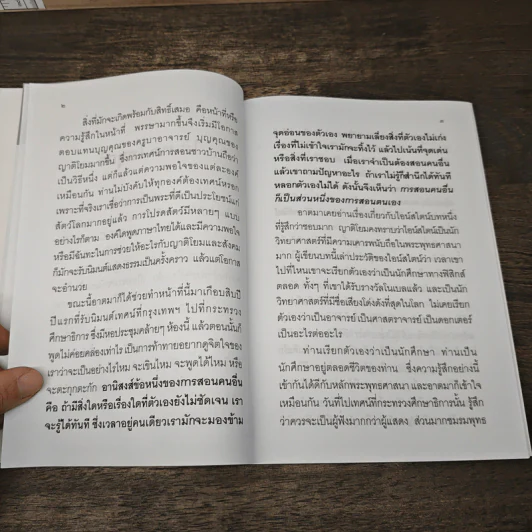 ๒
สิ่งที่มักจะเกิดพร้อมกับสิทธิ์เสมอ คือหน้าที่หรือ
ความรู้สึกในหน้าที่ พรรษามากขึ้นจึงเริ่มมีโอกาส
ตอบแทนบุญคุณของครูบาอาจารย์ บุญคุณของ
ญาติโยมมากขึ้น ซึ่งการเทศน์การสอนชาวบ้านถือว่า
เป็นวิธีหนึ่ง แต่ก็แล้วแต่ความพอใจของแต่ละองค์
เหมือนกัน ท่านไม่บังคับให้ทุกองค์ต้องเทศน์หรอก
เพราะที่จริงเราเชื่อว่าการเป็นพระที่ดีเป็นประโยชน์แก่
สัตว์โลกมากอยู่แล้ว การโปรดสัตว์มีหลายๆ แบบ
อย่างไรก็ตาม องค์ใดพูดภาษาไทยได้และมีความพอใจ
หรือมีฉันทะในการช่วยให้อะไรกับญาติโยมและสังคม
ก็มักจะรับนิมนต์แสดงธรรมเป็นครั้งคราว แล้วแต่โอกาส
จะอำนวย
ขณะนี้อาตมาก็ได้ช่วยทำหน้าที่นี้มาเกือบสิบปี
ปีแรกที่รับนิมนต์เทศน์ที่กรุงเทพฯ ไปที่กระทรวง
ศึกษาธิการ ซึ่งมีหอประชุมคล้ายๆ ห้องนี้ แล้วตอนนั้นก็
พูดไม่ค่อยคล่องเท่าไร เป็นการท้าทายอยากดูจิตใจของ
เราว่าจะเป็นอย่างไรไหม จะเขินไหม จะพูดได้ไหม หรือ
จะตะกุกตะกัก อานิสงส์ข้อหนึ่งของการสอนคนอื่น
คือ ถ้ามีสิ่งใดหรือเรื่องใดที่ตัวเองยังไม่ชัดเจน เรา
จะรู้ได้ทันที ซึ่งเวลาอยู่คนเดียวเรามักจะมองข้าม
จุดอ่อนของตัวเอง พยายามเลี่ยงสิ่งที่ตัวเองไม่เก่ง
เรื่องที่ไม่เข้าใจเรามักจะทิ้งไว้ แล้วไปเน้นที่จุดเด่น
หรือสิ่งที่เราชอบ เมื่อเราจำเป็นต้องสอนคนอื่น
แล้วเขาถามปัญหาอะไร ถ้าเราไม่รู้ก็สำนึกได้ทันที
หลอกตัวเองไม่ได้ ดังนั้นจึงเห็นว่า การสอนคนอื่น
ก็เป็นส่วนหนึ่งของการสอนตนเอง
อาตมาเคยอ่านเรื่องเกี่ยวกับไอน์สไตน์บทหนึ่ง
ที่รู้สึกว่าชอบมาก ญาติโยมคงทราบว่าไอน์สไตน์เป็นนัก
วิทยาศาสตร์ที่มีความเคารพนับถือในพระพุทธศาสนา
มาก ผู้เขียนบทนี้เล่าประวัติของไอน์สไตน์ว่า เวลาเขา
ไปที่ไหนเขาจะเรียกตัวเองว่าเป็นนักศึกษาทางฟิสิกส์
ตลอด ทั้งๆ ที่เขาได้รับรางวัลโนเบลแล้ว และเป็นนัก
วิทยาศาสตร์ที่มีชื่อเสียงโด่งดังที่สุดในโลก ไม่เคยเรียก
ตัวเองว่าเป็นอาจารย์ เป็นศาสตราจารย์ เป็นดอกเตอร์
เป็นอะไรต่ออะไร
ท่านเรียกตัวเองว่าเป็นนักศึกษา ท่านเป็น
นักศึกษาอยู่ตลอดชีวิตของท่าน ซึ่งความรู้สึกอย่างนี้
เข้ากันได้ดีกับหลักพระพุทธศาสนา และอาตมาก็เข้าใจ
เหมือนกัน วันที่ไปเทศน์ที่กระทรวงศึกษาธิการนั้น รู้สึก
ว่าควรจะเป็นผู้ฟังมากกว่าผู้แสดง ส่วนมากชมรมพุทธ